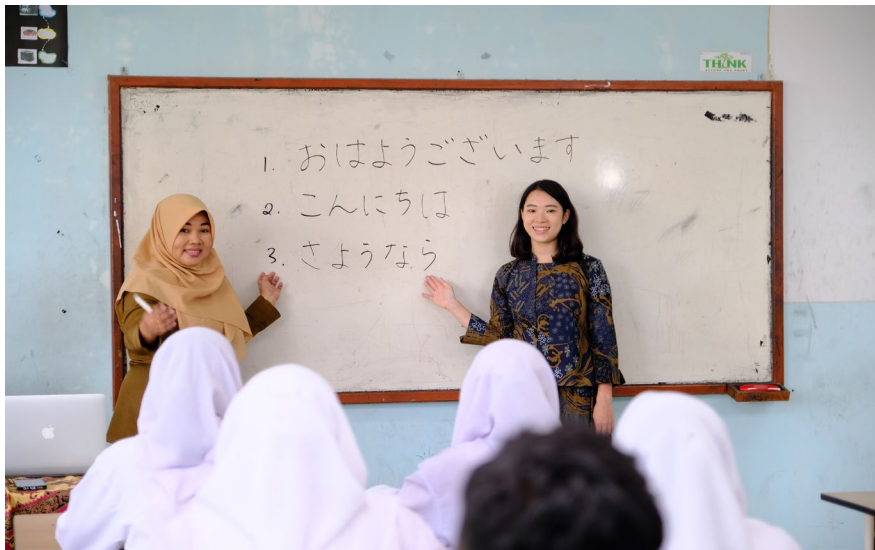 THINK
1. おはようございます
2. こんにちは
3. さようなら